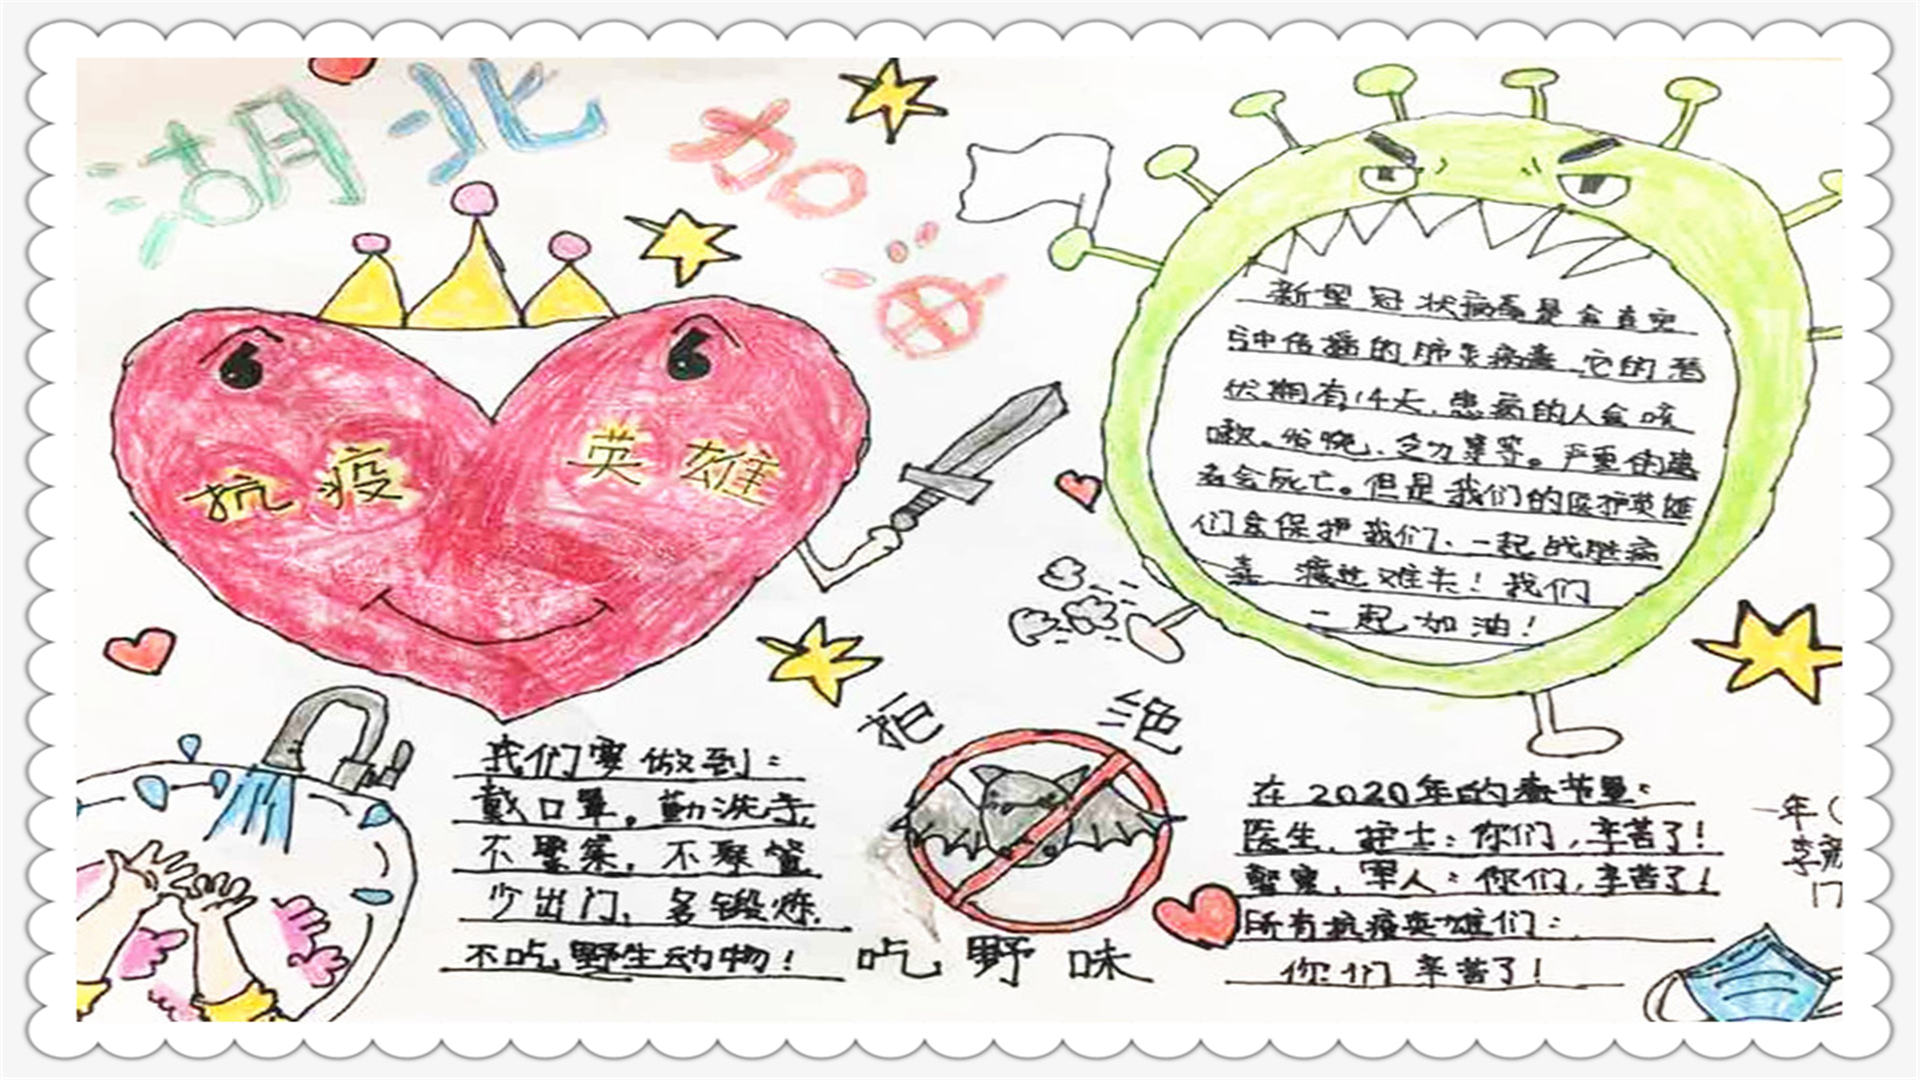 湖北加油
抗疫英雄
新型冠状病毒是会在空
气中传播的肺炎病毒.它的潜
伏期有14天.患病的人会咳
嗽、发烧、乏力等等。严重的患
者会死亡。但是我们的医护英雄
们会保护我们、一起战胜病
毒 度过难关！我们
一起加油！
拒绝
吃野味
我们要做到：
戴口罩。勤洗手,
不聚集，不聚餐
少出门、多锻炼.
不吃野生动物！
在2020年的春节里：
医生、护士：你们，辛苦了！
警察、军人：你们，辛苦了！
所有抗疫英雄们：
你们 辛苦了！
一年（
李
17